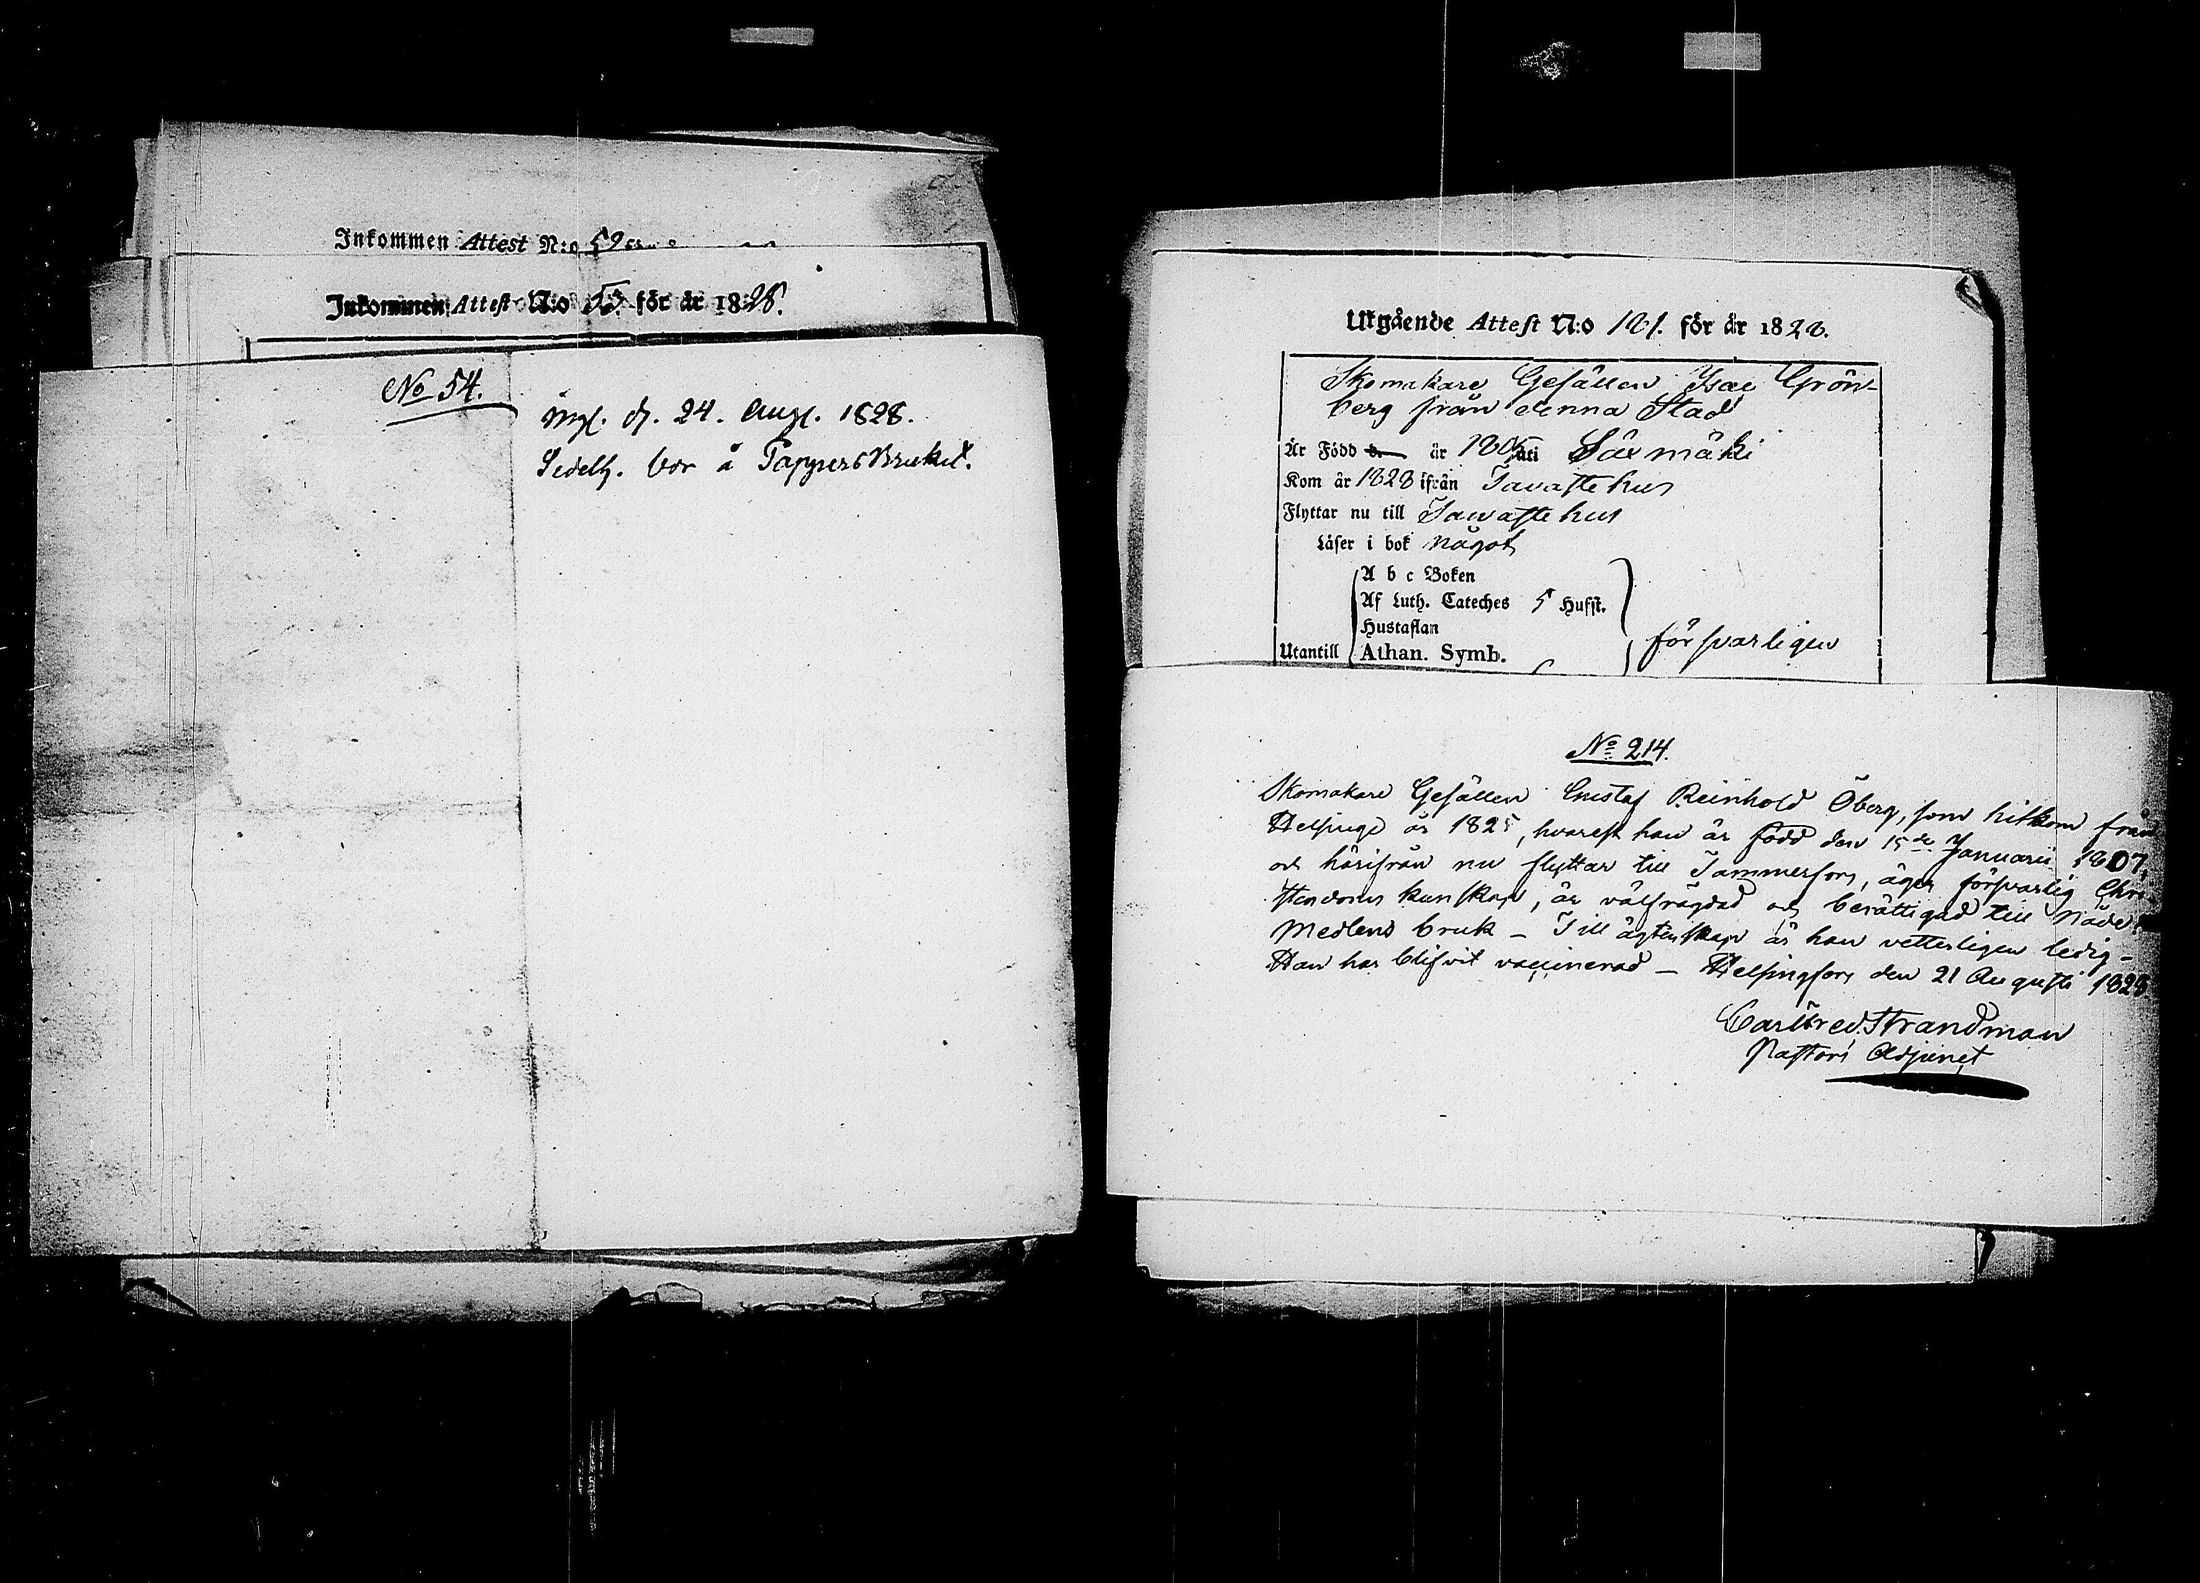 Inkommen Attest N:o 52
Inkommen Attest N:o 53. för år 1828.
No 54.
ingf. d. 24. Augs. 1828.
Sedelh. bor å PappersBruket.
Utgående Attest N:o 181. för år 1828.
Skomakare Gesällen Isac Grön-
berg från denna Stad
Är Född år uti Säxmäki
Kom år 1828 ifrån Tavastehus
Flyttar nu till Tavastehus
Läser i bok något
A b c Boken
Af Luth. Cateches 5 Hufst.
Hustaflan
Utantill Athan. Symb.
försvarligen
No 214.
Skomakare Gesällen Gustaf Reinhold Öberg, som hitkom från
Helsinge år 1825, hvarest han är född den 15de Januarii 1807,
och härifrån nu flyttar till Tammerfors, äger försvarlig Chri-
stendoms kunskap, är välfrägdad och berättigad till Nåde-
Medlens bruk – Till ägtenskap är han vetterligen ledig –
Han har blifvit vaccinerad – Helsingfors den 21 Augusti 1828
Carl Fred. Strandman
Pastors Adjunct